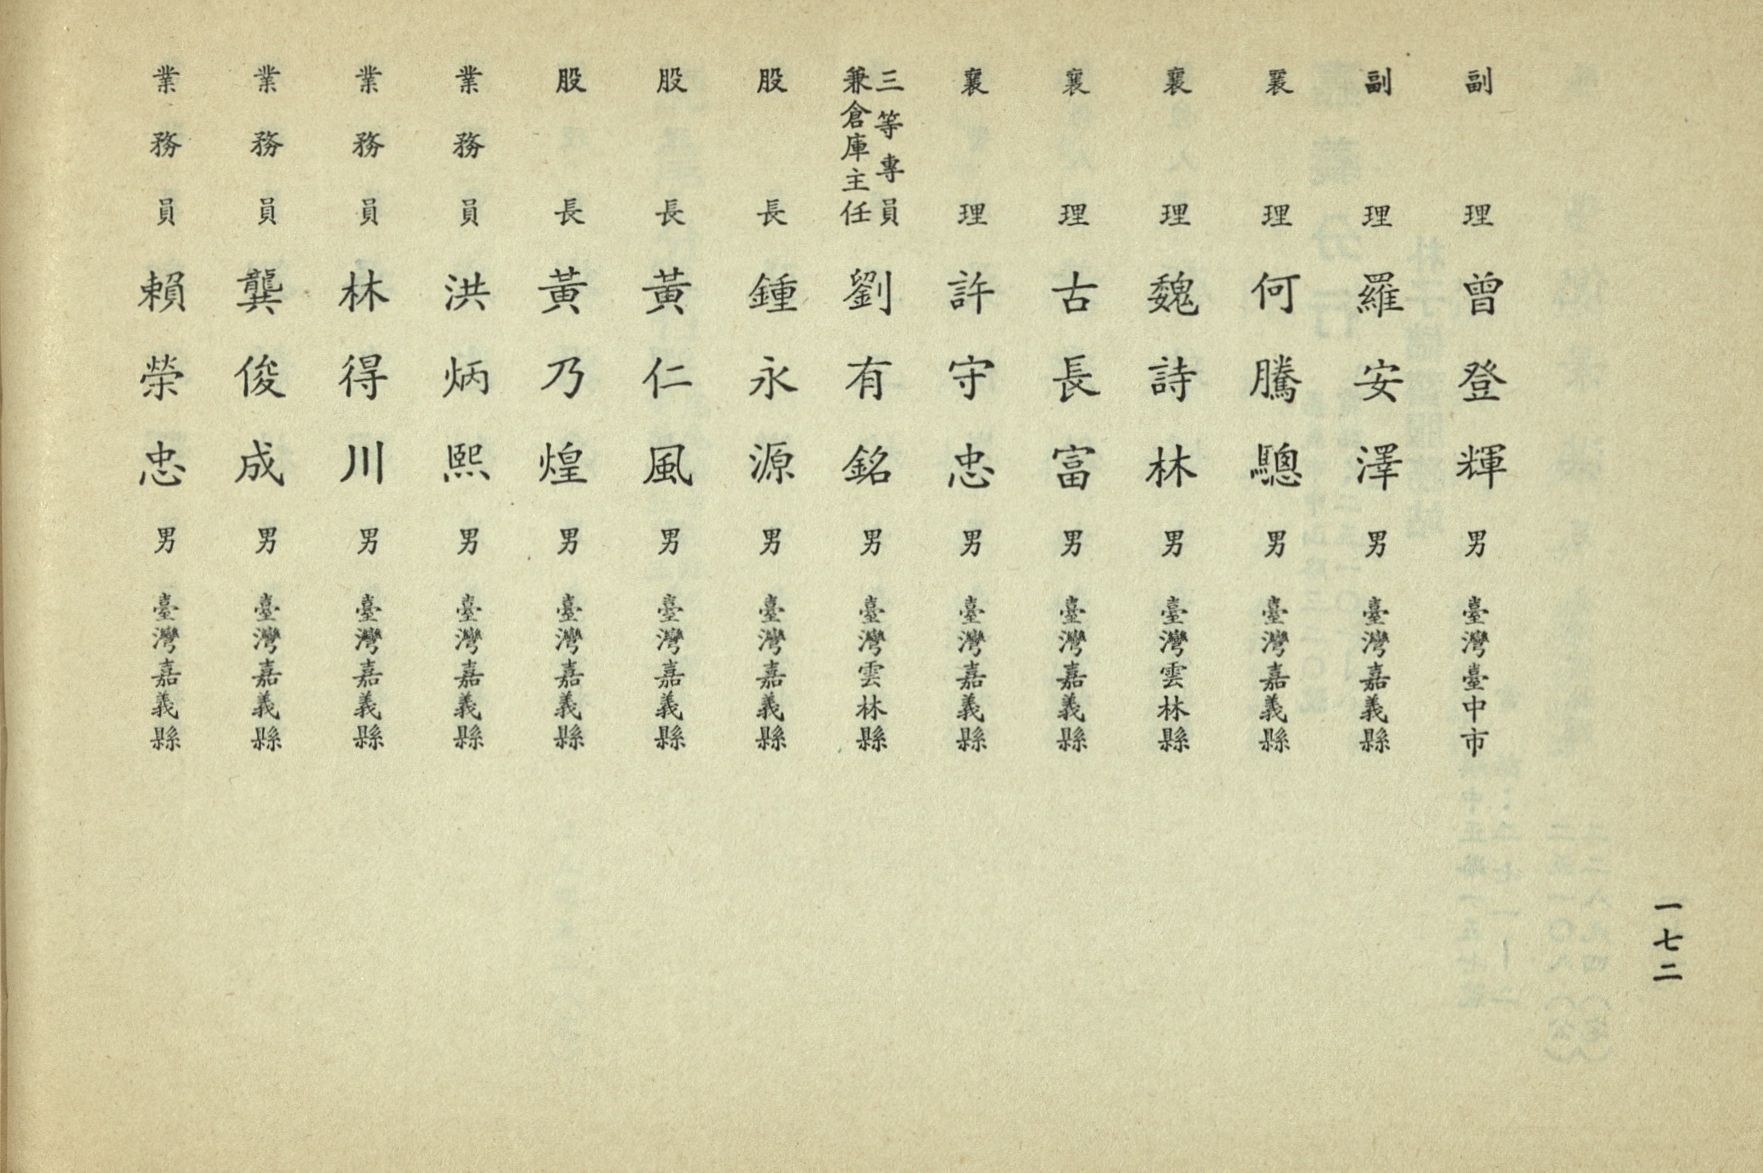 一七二
副理 曾登輝 男 臺灣臺中市
副理 羅安澤 男 臺灣嘉義縣
襄理 何騰驄 男 臺灣嘉義縣
襄理 魏詩林 男 臺灣雲林縣
襄理 古長富 男 臺灣嘉義縣
襄理 許守忠 男 臺灣嘉義縣
三等專員兼倉庫主任 劉有銘 男 臺灣雲林縣
股長 鍾永源 男 臺灣嘉義縣
股長 黃仁風 男 臺灣嘉義縣
股長 黃乃煌 男 臺灣嘉義縣
業務員 洪炳熙 男 臺灣嘉義縣
業務員 林得川 男 臺灣嘉義縣
業務員 龔俊成 男 臺灣嘉義縣
業務員 賴榮忠 男 臺灣嘉義縣